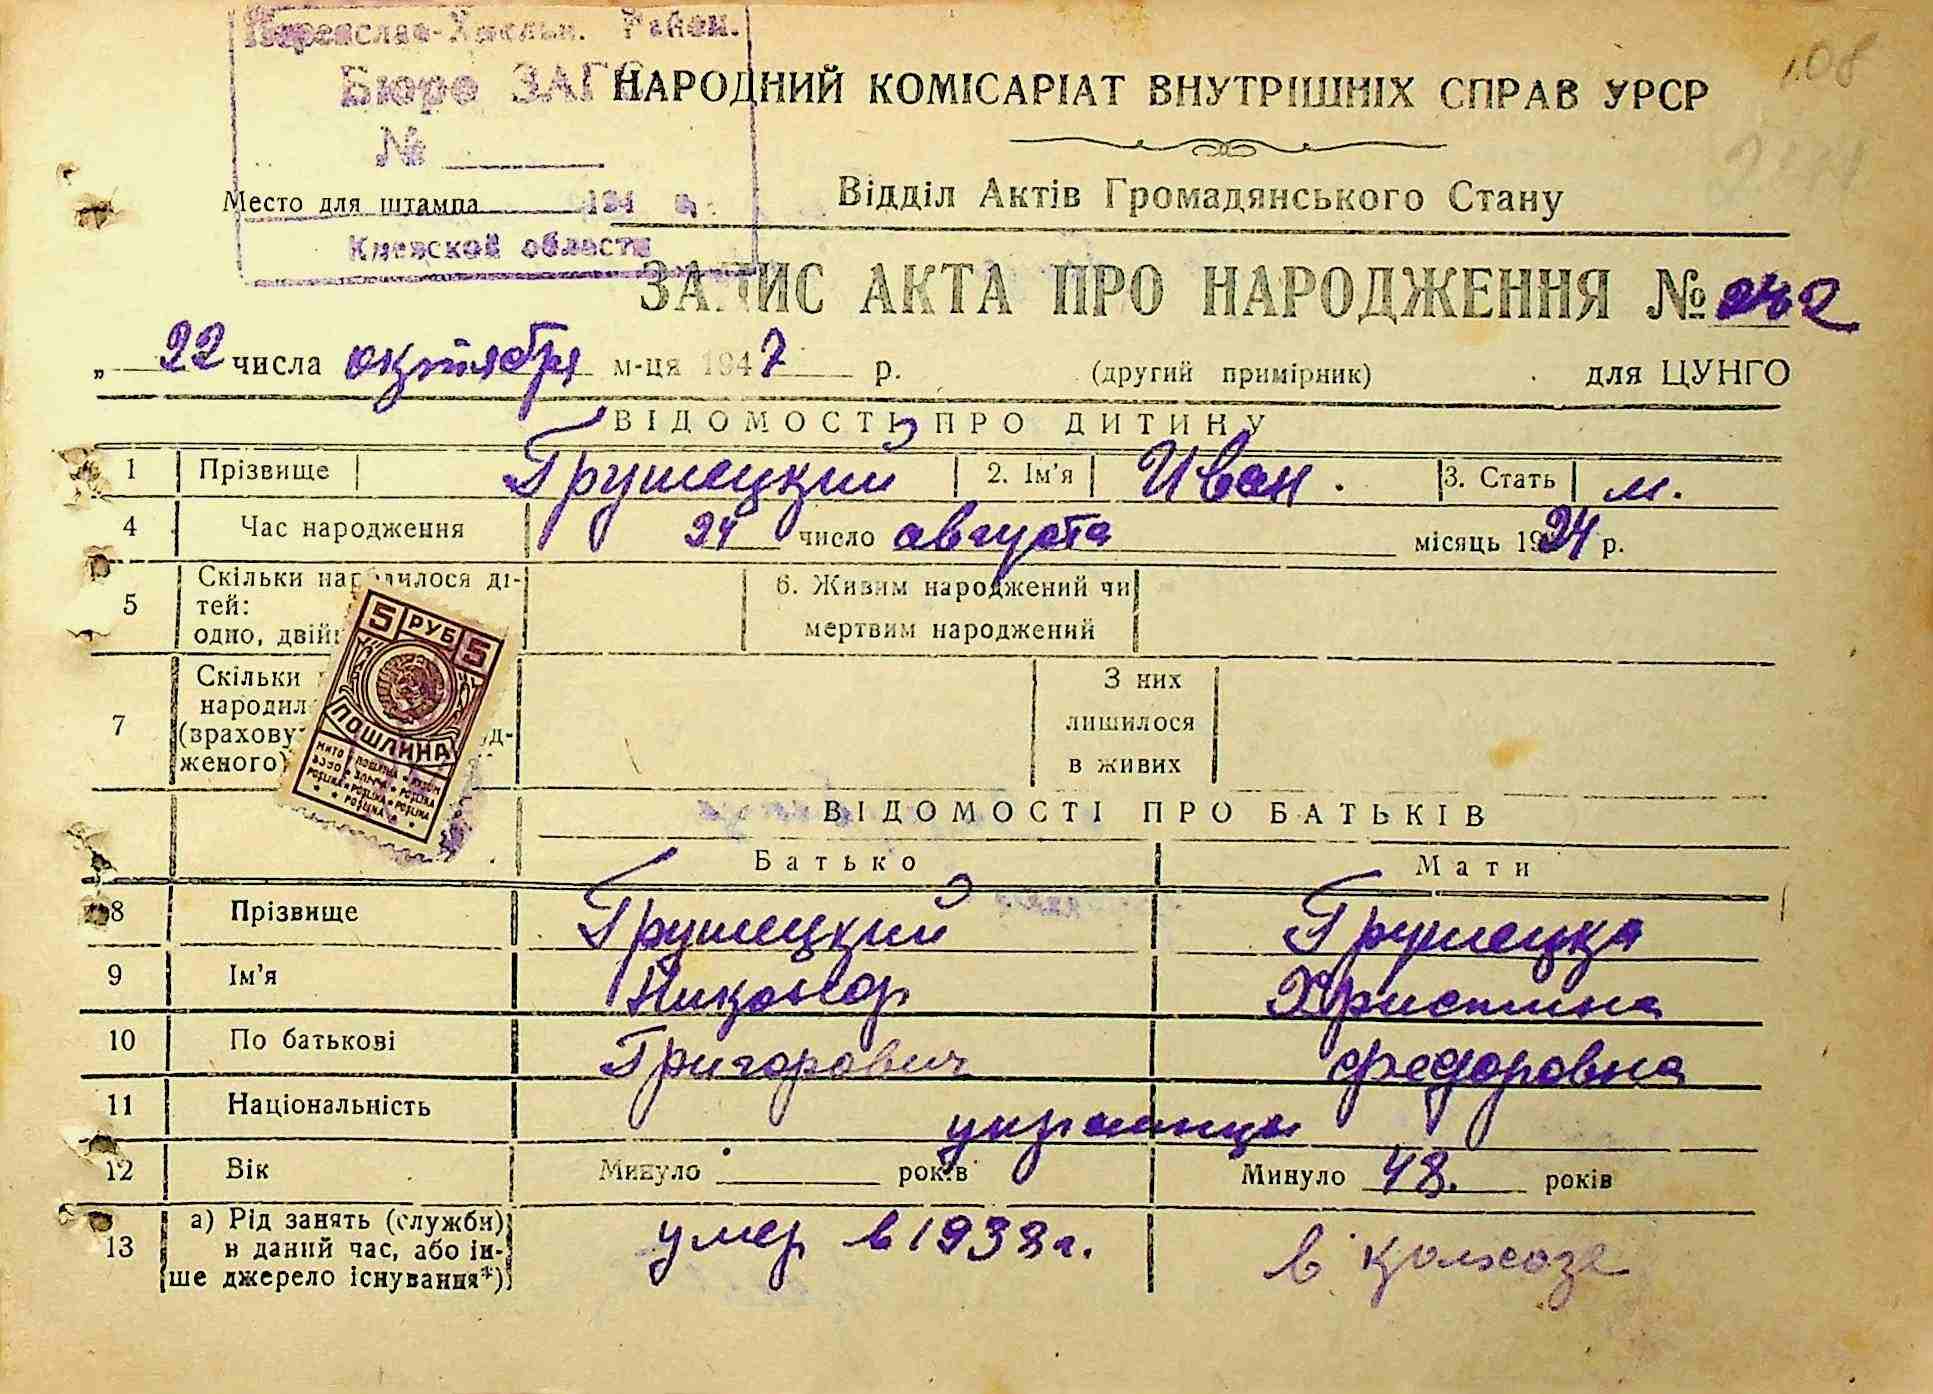 Переяслав-Хмельн. Район.
Бюро ЗАГС
№
Место для штампа 194 г.
Киевской области
108
НАРОДНИЙ КОМІСАРІАТ ВНУТРІШНІХ СПРАВ УРСР
Відділ Актів Громадянського Стану
ЗАПИС АКТА ПРО НАРОДЖЕННЯ № 242
„ 22 числа октября м-ця 1947 р. (другий примірник) для ЦУНГО
ВІДОМОСТІ ПРО ДИТИНУ
1 Прізвище Грушецкий 2. Ім'я Иван. 3. Стать м.
4 Час народження 24 число августа місяць 1924 р.
5 Скільки народилося ді-
тей:
одно, двій
6. Живим народжений чи
мертвим народжений
7 Скільки
народил
(врахову д-
женого)
З них
лишилося
в живих
5 РУБ 5
ПОШЛИНА
ВІДОМОСТІ ПРО БАТЬКІВ
Батько Мати
8 Прізвище Грушецкий Грушецка
9 Ім'я Никонор Христина
10 По батькові Григорович Федоровна
11 Національність украинцы
12 Вік Минуло років Минуло 48. років
13 а) Рід занять (служби)
в даний час, або ін-
ше джерело існування*)
умер в 1933 г. в колхозе